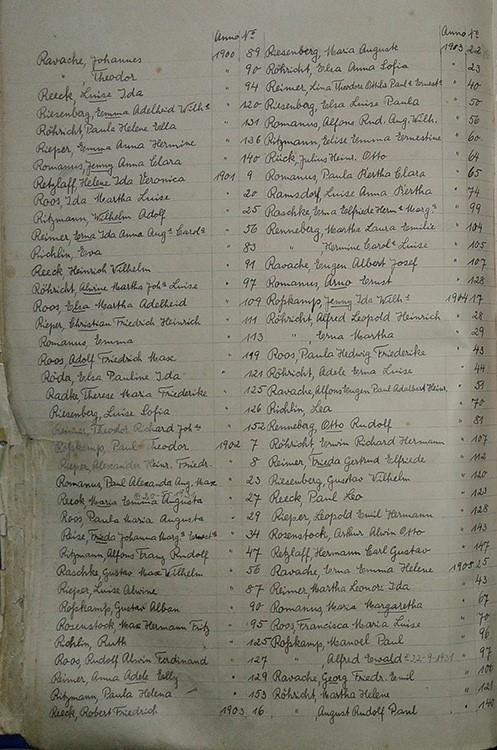 Anno No
Ravache, Johannes 1900 89
" Theodor " 90
Reeck Luise Ida " 94
Riesenberg, Emma Adelheid Wilhᵃ " 120
Röhricht, Paula Helene Ella " 131
Rieper, Emma Anna Hermine " 136
Romanus, Jenny Anna Clara " 140
Retzlaff Helene Ida Veronica 1901 9
Roos, Ida Martha Luise " 20
Ritzmann Wilhelm Adolf " 25
Reimer, Erna Ida Anna Augᵃ Carolᵃ " 56
Richlin, Eva " 83
Reeck Heinrich Wilhelm " 91
Röhricht, Alwine Martha Johᵃ Luise " 97
Roos Elsa Martha Adelheid " 109
Rieper, Christian Friedrich Heinrich " 111
Romanus, Emma " 113
Roos, Adolf Friedrich Max " 119
Röda, Elsa Pauline Ida " 121
Radke, Therese Maria Friederike " 125
Riesenberg, Luise Sofia " 126
Reimer, Theodor Richard Johˢ " 152
Ropkamp, Paul Theodor 1902 7
Rieper Alexander Heinr. Friedr. " 8
Romanus, Paul Alexander Aug. Max " 23
Reeck Maria Emma Augusta " 27
Roos Paula Maria Augusta " 29
Reise, Frieda Johanna Margᵃ Ernestᵃ " 34
Ritzmann, Alfons Franz Rudolf " 47
Raschke, Gustav Max Wilhelm " 56
Rieper, Luise Alwine " 87
Ropkamp, Gustav Alban " 90
Rosenstock, Max Hermann Fritz " 95
Richlin, Ruth " 125
Roos, Rudolf Alwin Ferdinand " 127
Reimer, Anna Adele Elly " 129
Ritzmann, Paula Helena " 153
Reeck, Robert Friedrich 1903 16
Anno No
Riesenberg, Maria Auguste 1903 22
Röhricht, Elsa Anna Sofia " 23
Reimer, Lina Theodore Ottilie Paulᵃ Ernestᵃ " 40
Riesenberg, Elsa Luise Paula " 50
Romanus, Alfons Rud. Aug. Wilh. " 56
Ritzmann, Elise Emma Ernestine " 60
Rück, Julius Heinr. Otto " 64
Romanus, Paula Bertha Clara " 65
Ramsdorf, Luise Anna Bertha " 74
Raschke, Erna Elfriede Hermᵃ Margᵃ " 99
Renneberg, Martha Laura Emilie " 104
" Hermine Carolᵃ Luise " 105
Ravache, Eugen Albert Josef " 107
Romanus, Arno Ernst " 128
Ropkamp, Jenny Ida Wilhᵃ 1904 17
Röhricht, Alfred Leopold Heinrich " 28
" Erna Martha " 29
Roos, Paula Hedwig Friederike " 43
Röhricht, Adele Erna Luise " 44
Ravache, Alfons Eugen Paul Adalbert Heinr. " 51
Richlin, Lea " 70
Renneberg, Otto Rudolf " 81
Röhricht Erwin Richard Hermann " 107
Reimer, Frieda Gertrud Elfriede " 112
Riesenberg, Gustav Wilhelm " 120
Reeck, Paul Leo " 123
Rieper, Leopold Emil Hermann " 128
Rosenstock, Arthur Alwin Otto " 143
Retzlaff, Hermann Carl Gustav " 147
Ravache, Erna Emma Helene 1905 25
Reimer Martha Leonore Ida " 43
Romanus Maria Margaretha " 67
Roos, Francisca Maria Luise " 70
Ropkamp, Manoel Paul " 96
" Alfred Ewald 22-9-1931 " 97
Ravache, Georg Friedr. Emil " 101
Röhricht, Martha Helene " 128
" August Rudolf Paul " 140